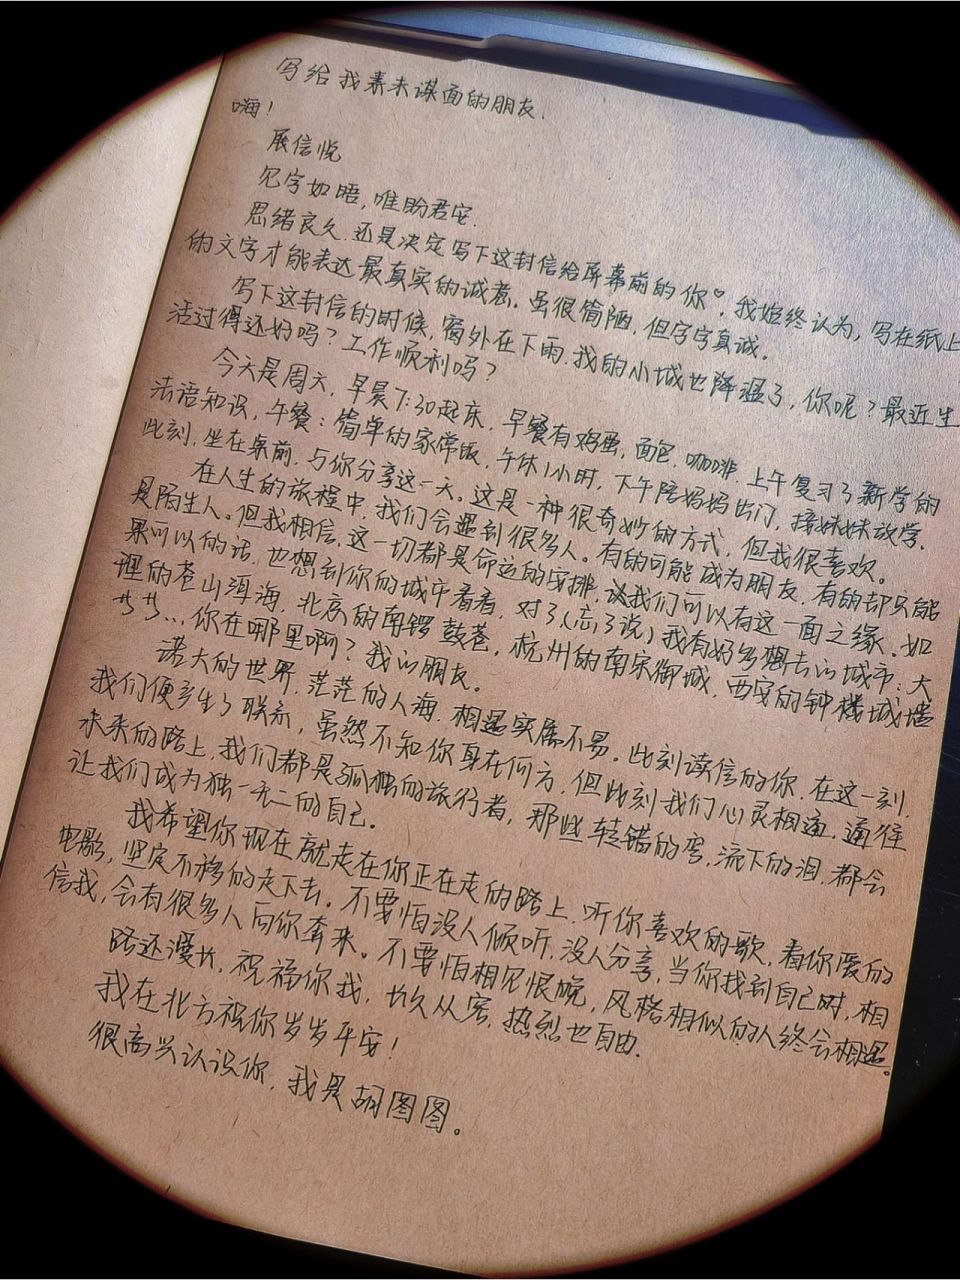 写给我素未谋面的朋友.
嗨!
展信悦
见字如晤,唯盼君安.
思绪良久.还是决定写下这封信给屏幕前的你♡.我始终认为,写在纸上
的文字才能表达最真实的诚意。虽很简陋,但字字真诚。
写下这封信的时候,窗外在下雨.我的小城也降温了,你呢?最近生
活过得还好吗?工作顺利吗?
今天是周六,早晨7:30起床,早餐有鸡蛋,面包,咖啡.上午复习了新学的
法语知识,午餐:简单的家常饭,午休1小时,下午陪妈妈出门,接妹妹放学.
此刻,坐在桌前,与你分享这一天。这是一种很奇妙的方式,但我很喜欢。
在人生的旅程中,我们会遇到很多人。有的可能成为朋友,有的却只能
是陌生人。但我相信,这一切都是命运的安排,让我们可以有这一面之缘。如
果可以的话,也想到你的城市看看,对了(忘了说)我有好多想去的城市:大
理的苍山洱海,北京的南锣鼓巷,杭州的南宋御城,西安的钟楼城墙
...你在哪里啊?我的朋友。
诺大的世界,茫茫的人海,相遇实属不易。此刻读信的你,在这一刻,
我们便产生了联系,虽然不知你身在何方,但此刻我们心灵相通,通往
未来的路上,我们都是孤独的旅行者,那些转错的弯,流下的泪,都会
让我们成为独一无二的自己。
我希望你现在就走在你正在走的路上,听你喜欢的歌,看你爱的
电影,坚定不移的走下去。不要怕没人倾听,没人分享,当你找到自己时,相
信我,会有很多人向你奔来。不要怕相见恨晚,风格相似的人终会相遇。
路还漫长,祝福你我,长久从容,热烈也自由.
我在北方祝你岁岁平安!
很高兴认识你,我是胡图图。